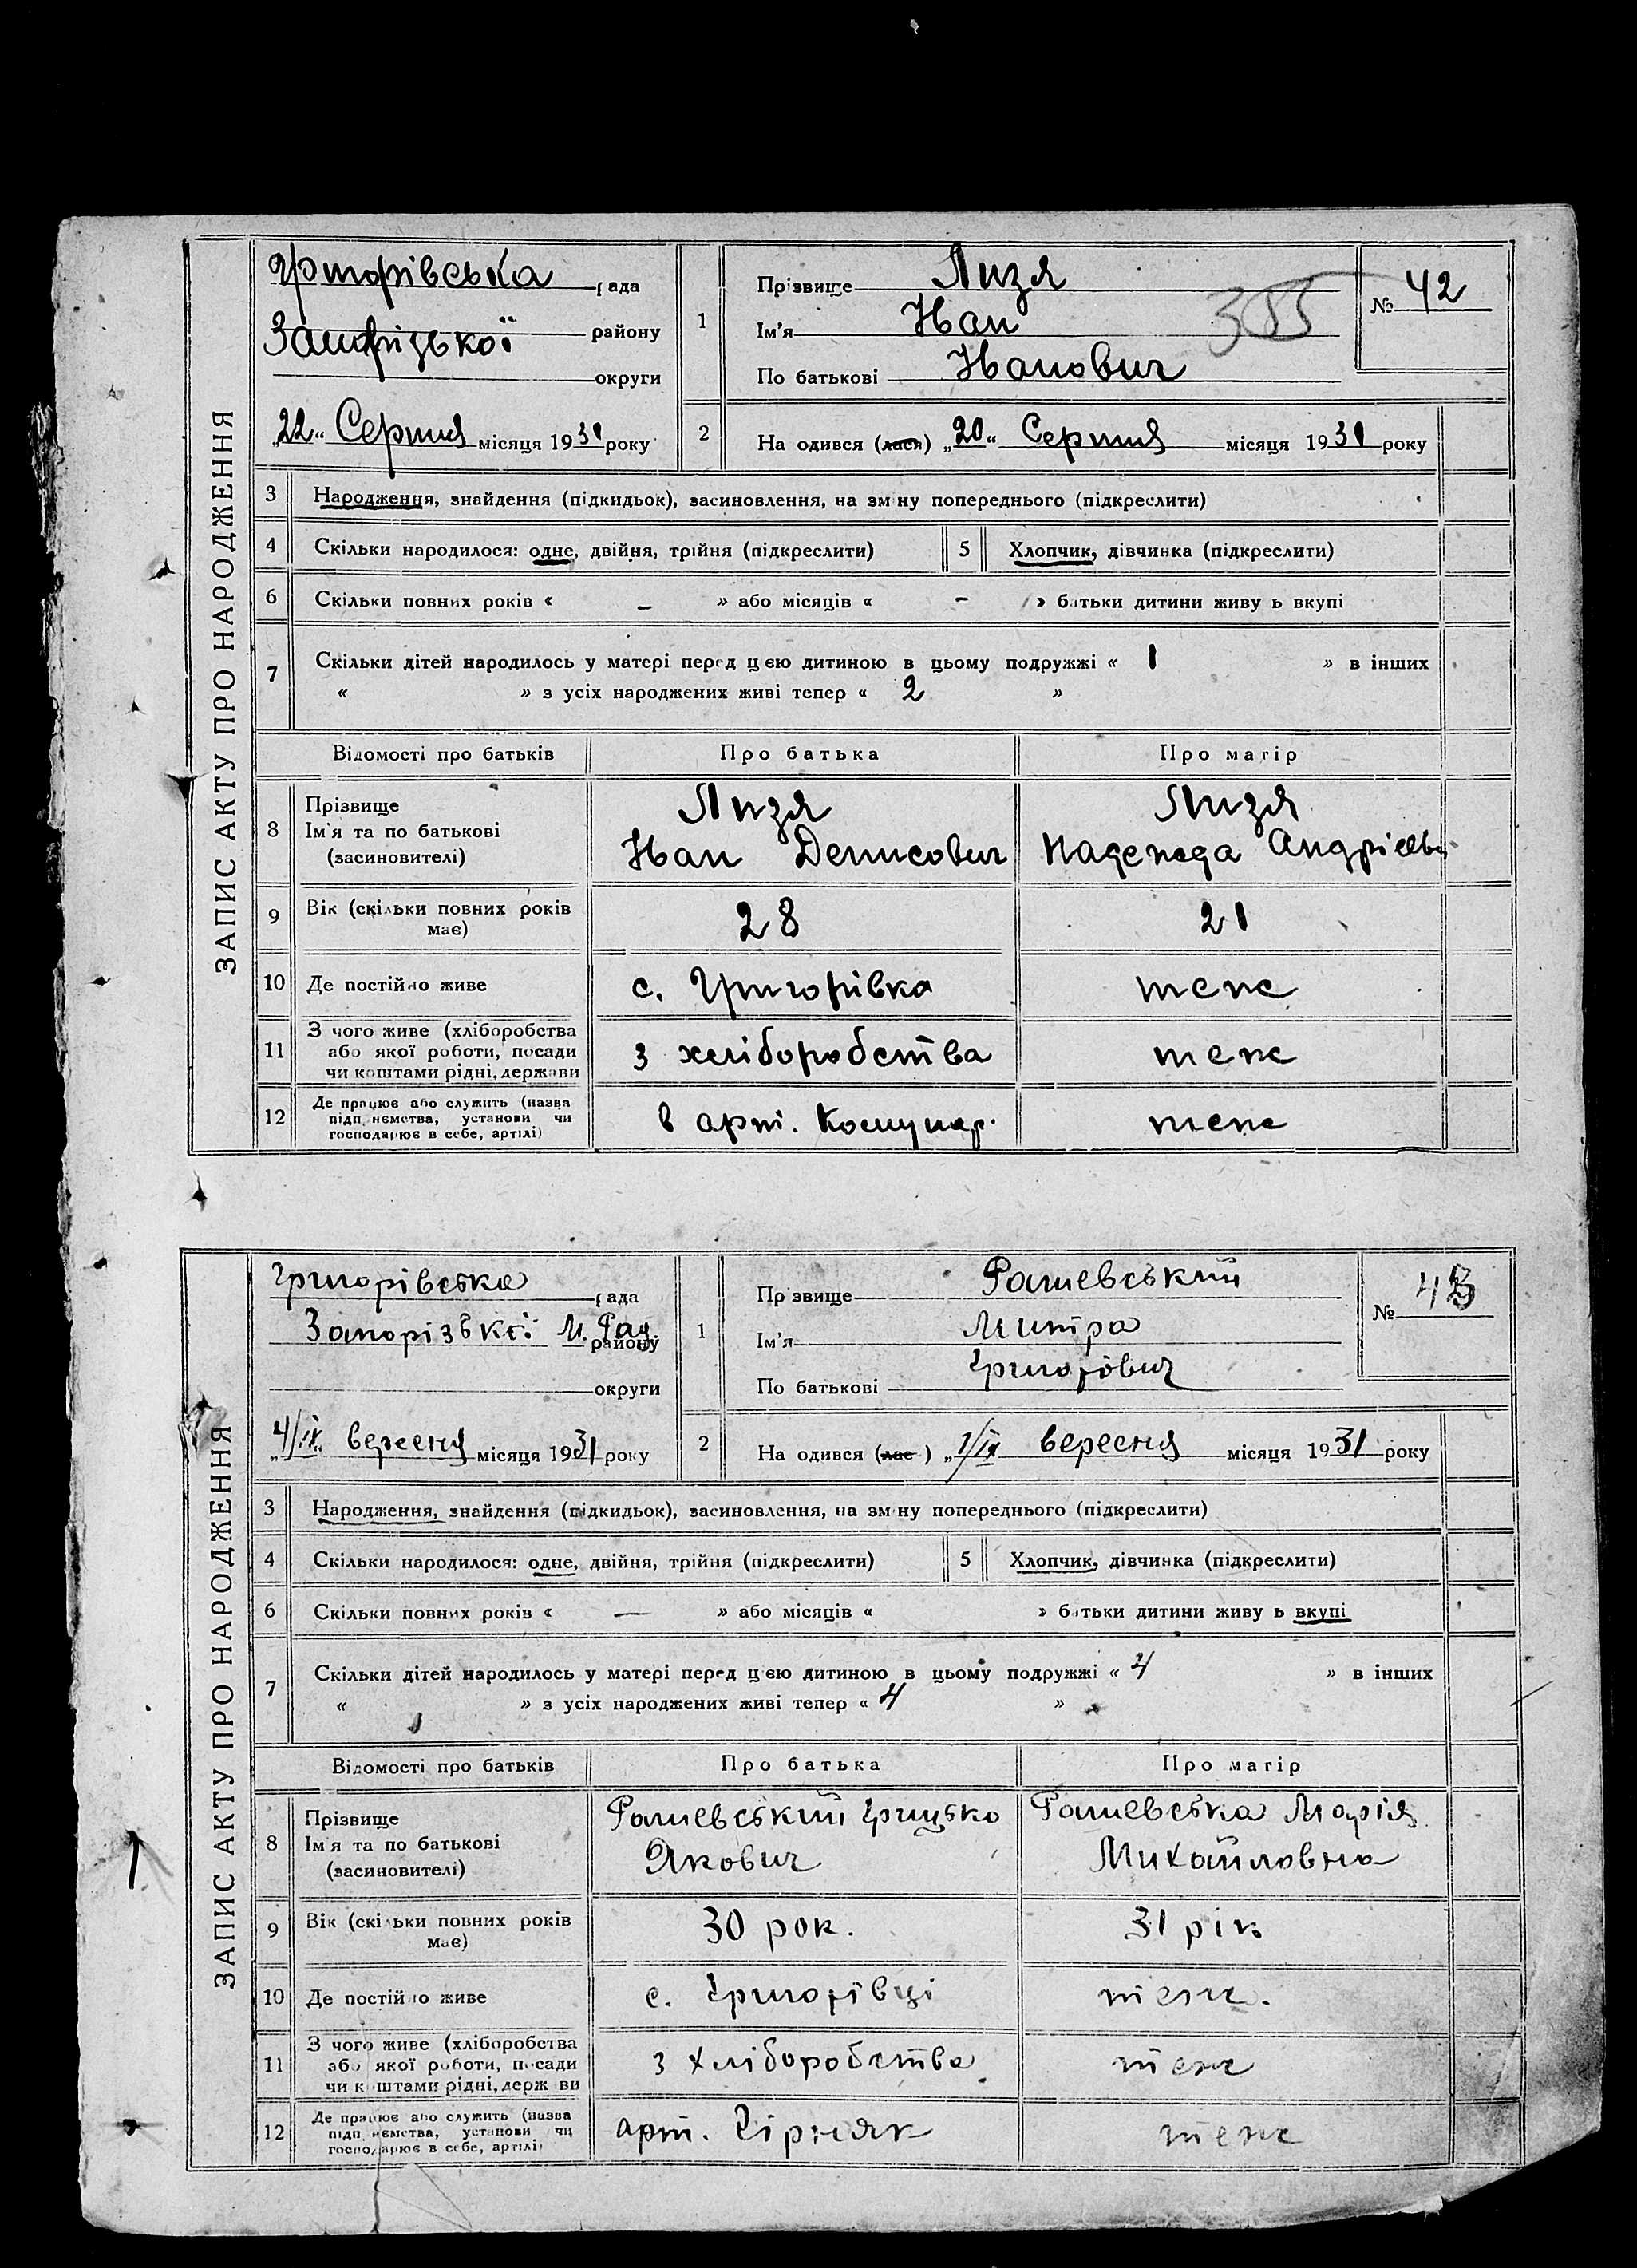 ЗАПИС АКТУ ПРО НАРОДЖЕННЯ
Григорівська рада
Запорізької району
округи
„22“ Серпня місяця 1931 року
1
Прізвище Лизя
Ім'я Иван
По батькові Иванович
№ 42
385
2 На одився (лася) „20“ Серпня місяця 1931 року
3 Народження, знайдення (підкидьок), засиновлення, на зміну попереднього (підкреслити)
4 Скільки народилося: одне, двійня, трійня (підкреслити) 5 Хлопчик, дівчинка (підкреслити)
6 Скільки повних років « – » або місяців « – » батьки дитини живу ь вкупі
7 Скільки дітей народилось у матері перед цією дитиною в цьому подружжі « 1 » в інших
« » з усіх народжених живі тепер « 2 »
Відомості про батьків Про батька Про матір
8 Прізвище Ім'я та по батькові (засиновителі)
Лизя Иван Денисович
Лизя Надежда Андріевн
9 Вік (скільки повних років має) 28 21
10 Де постійно живе с. Григорівка теж
11 З чого живе (хліборобства або якої роботи, посади чи коштами рідні, держави з хліборобства теж
12 Де працює або служить (назва підприємства, установи чи господарює в себе, артілі) в арт. Комунар. теж
ЗАПИС АКТУ ПРО НАРОДЖЕННЯ
Григорівська рада
Запорізької М. Рад. району
округи
„4/ІХ“ вересня місяця 1931 року
1
Пр звище Рашевський
Ім'я Митра
По батькові Григорович
№ 43
2 На одився (лас ) „1/ІХ вересня місяця 1931 року
3 Народження, знайдення (підкидьок), засиновлення, на зміну попереднього (підкреслити)
4 Скільки народилося: одне, двійня, трійня (підкреслити) 5 Хлопчик, дівчинка (підкреслити)
6 Скільки повних років « — » або місяців « » батьки дитини живу ь вкупі
7 Скільки дітей народилось у матері перед цією дитиною в цьому подружжі « 4 » в інших
« » з усіх народжених живі тепер « 4 »
Відомості про батьків Про батька Про матір
8 Прізвище Ім'я та по батькові (засиновителі)
Рашевський Грицько Якович
Рашевська Марія Михайловна
9 Вік (скільки повних років має) 30 рок. 31 рік
10 Де постійно живе с. Григорівці теж.
11 З чого живе (хліборобства або якої роботи, посади чи коштами рідні, держави з хліборобства теж
12 Де працює або служить (назва підприємства, установи чи господарює в себе, артілі) арт. Гірняк теж